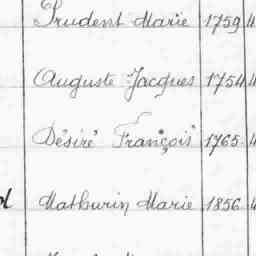 Prudent Marie 1759 4
Auguste Jacques 1754 4
Désiré François 1765 4
Mathurin Marie 1856 4